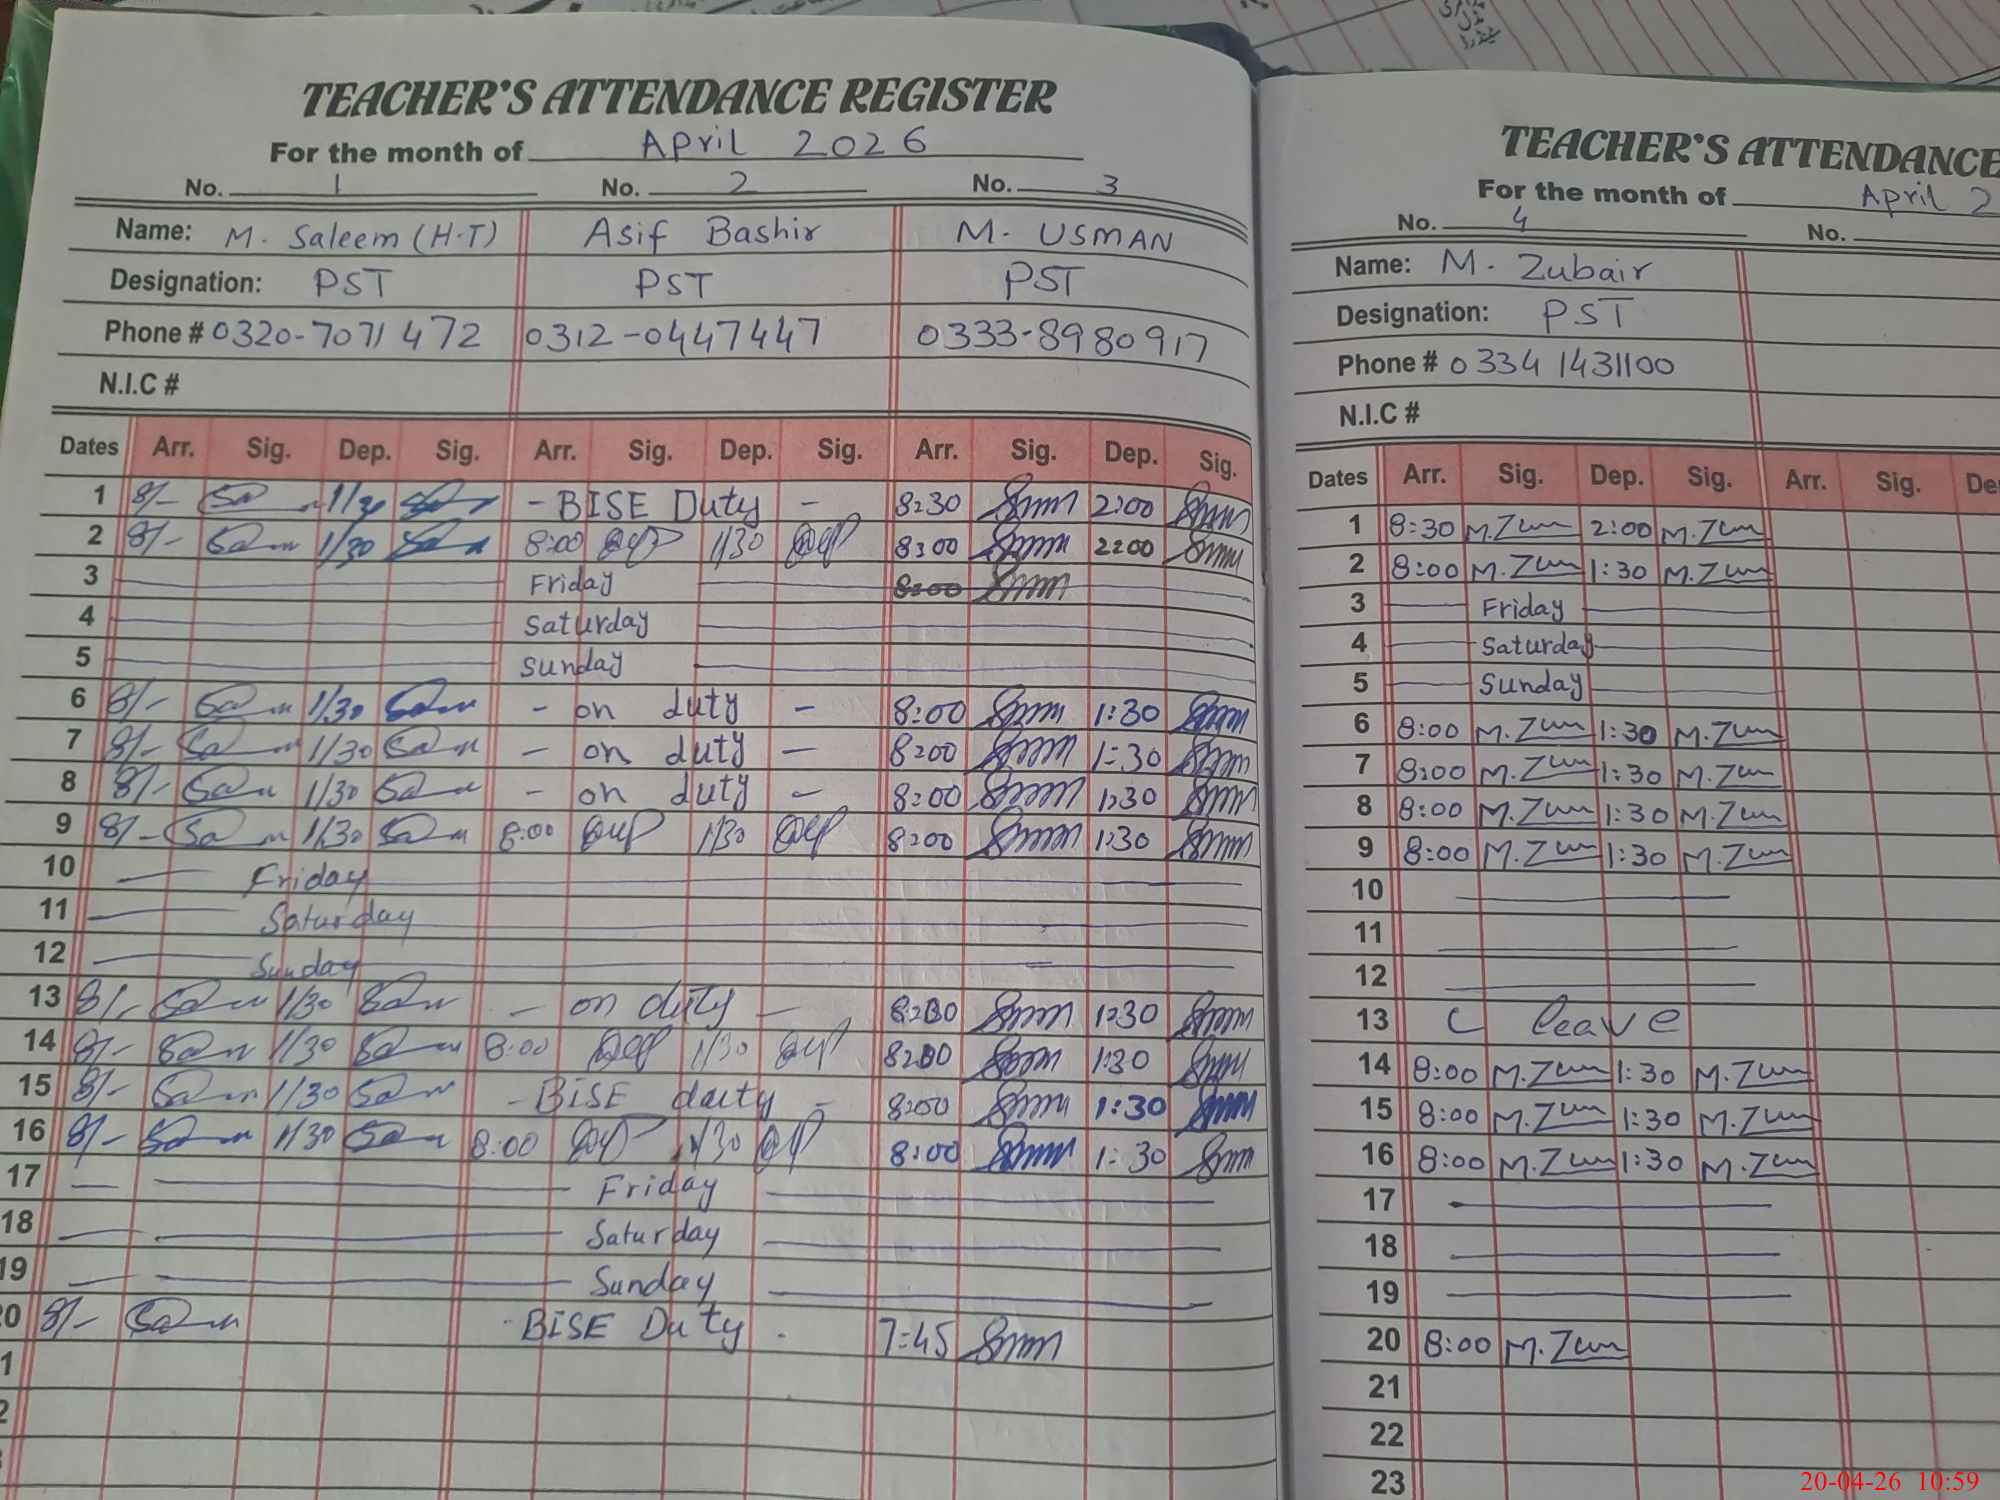 TEACHER'S ATTENDANCE REGISTER
For the month of April 2026
No. 1 No. 2 No. 3
Name: M. Saleem (H.T) Asif Bashir M. USMAN
Designation: PST PST PST
Phone # 0320-7071472 0312-0447447 0333-8980917
N.I.C #
Dates Arr. Sig. Dep. Sig. Arr. Sig. Dep. Sig. Arr. Sig. Dep. Sig.
1 8/- 1/30 - BISE Duty - 8:30 2:00
2 8/- 1/30 8:00 1/30 8:00 2:00
3 Friday 8:00
4 Saturday
5 Sunday
6 8/- 1/30 - on duty - 8:00 1:30
7 8/- 1/30 - on duty - 8:00 1:30
8 8/- 1/30 - on duty - 8:00 1:30
9 8/- 1/30 8:00 1/30 8:00 1:30
10 Friday
11 Saturday
12 Sunday
13 8/- 1/30 - on duty - 8:00 1:30
14 8/- 1/30 8:00 1/30 8:00 1:30
15 8/- 1/30 - BISE duty - 8:00 1:30
16 8/- 1/30 8:00 1/30 8:00 1:30
17 Friday
18 Saturday
19 Sunday
20 8/- BISE Duty 7:45
TEACHER'S ATTENDANCE
For the month of April 2
No. 4 No.
Name: M. Zubair
Designation: PST
Phone # 0334 1431100
N.I.C #
Dates Arr. Sig. Dep. Sig. Arr. Sig. De
1 8:30 2:00
2 8:00 1:30
3 Friday
4 Saturday
5 Sunday
6 8:00 1:30
7 8:00 1:30
8 8:00 1:30
9 8:00 1:30
10
11
12
13 C leave
14 8:00 1:30
15 8:00 1:30
16 8:00 1:30
17
18
19
20 8:00
21
22
23
20-04-26 10:59